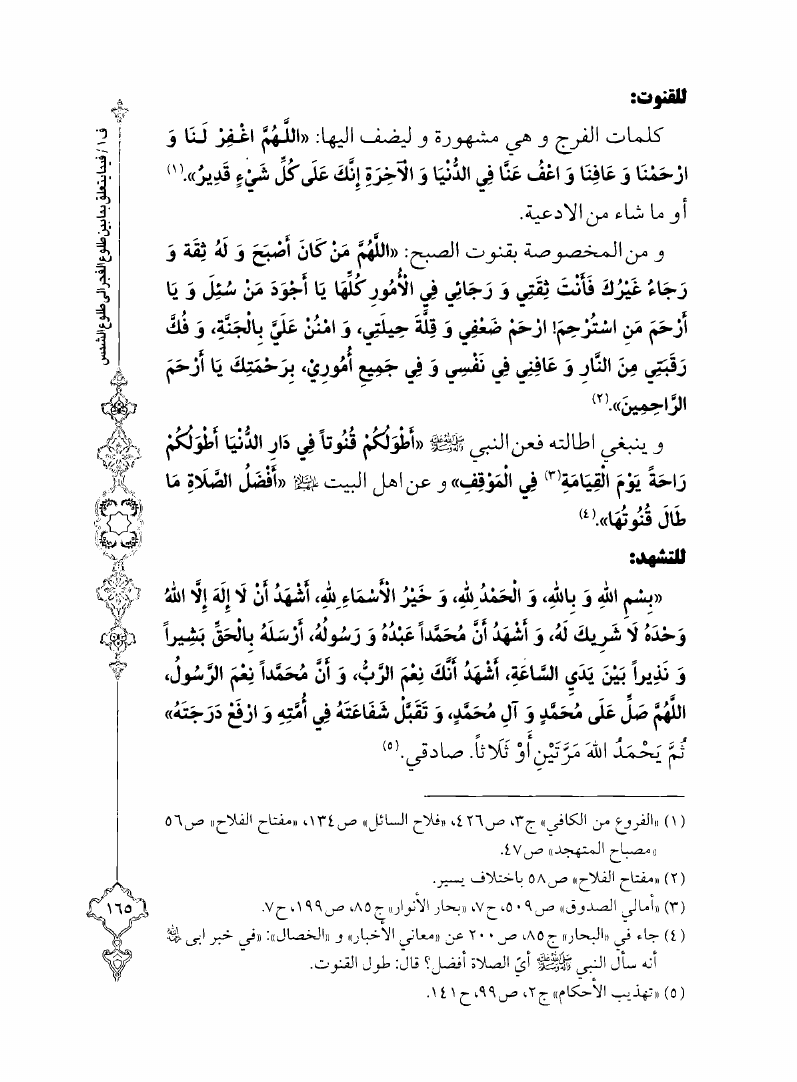 للقنوت:
كلمات الفرج و هي مشهورة و ليضف اليها: «اللَّهُمَّ اغْفِرْ لَنَا وَ
ارْحَمْنَا وَ عَافِنَا وَ اعْفُ عَنَّا فِي الدُّنْيَا وَ الْآخِرَةِ إِنَّكَ عَلَى كُلِّ شَيْءٍ قَدِيرٌ».(١)
أو ما شاء من الادعية.
و من المخصوصة بقنوت الصبح: «اللَّهُمَّ مَنْ كَانَ أَصْبَحَ وَ لَهُ ثِقَة وَ
رَجَاءُ غَيْرُكَ فَأَنْتَ ثِقَتِي وَ رَجَائِي فِي الْأُمُورِ كُلِّهَا يَا أَجْوَدَ مَنْ سُئِلَ وَ يَا
أَرْحَمَ مَنِ اسْتُرْحِمَ! ارْحَمْ ضَعْفِي وَ قِلَّةَ حِيلَتِي، وَ امْنُنْ عَلَيَّ بِالْجَنَّةِ، وَ فُكَّ
رَقَبَتِي مِنَ النَّارِ وَ عَافِنِي فِي نَفْسِي وَ فِي جَمِيعِ أُمُورِيْ، بِرَحْمَتِكَ يَا أَرْحَمَ
الرَّاحِمِينَ».(٢)
و ينبغي اطالته فعن النبي ﷺ «أَطْوَلُكُمْ قُنُوتاً فِي دَارِ الدُّنْيَا أَطْوَلُكُمْ
رَاحَةً يَوْمَ الْقِيَامَةِ(٣) فِي الْمَوْقِفِ» و عن اهل البيت عليهم السلام «أَفْضَلُ الصَّلَاةِ مَا
طَالَ قُنُوتُهَا».(٤)
للتشهد:
«بِسْمِ اللهِ وَ بِاللهِ، وَ الْحَمْدُ لِلهِ، وَ خَيْرُ الْأَسْمَاءِ لِلهِ، أَشْهَدُ أَنْ لَا إِلَهَ إِلَّا اللهُ
وَحْدَهُ لَا شَرِيكَ لَهُ، وَ أَشْهَدُ أَنَّ مُحَمَّداً عَبْدُهُ وَ رَسُولُهُ، أَرْسَلَهُ بِالْحَقِّ بَشِيراً
وَ نَذِيراً بَيْنَ يَدَيِ السَّاعَةِ، أَشْهَدُ أَنَّكَ نِعْمَ الرَّبُّ، وَ أَنَّ مُحَمَّداً نِعْمَ الرَّسُولُ،
اللَّهُمَّ صَلِّ عَلَى مُحَمَّدٍ وَ آلِ مُحَمَّدٍ، وَ تَقَبَّلْ شَفَاعَتَهُ فِي أُمَّتِهِ وَ ارْفَعْ دَرَجَتَهُ»
ثُمَّ يَحْمَدُ اللهَ مَرَّتَيْنِ أَوْ ثَلَاثاً. صادقي.(٥)
(١) «الفروع من الكافي» ج٣، ص٤٢٦، «فلاح السائل» ص١٣٤، «مفتاح الفلاح» ص٥٦
«مصباح المتهجد» ص٤٧.
(٢) «مفتاح الفلاح» ص٥٨ باختلاف يسير.
(٣) «أمالي الصدوق» ص٥٠٩، ح٧، «بحار الأنوار» ج٨٥، ص١٩٩، ح٧.
(٤) جاء في «البحار» ج٨٥، ص٢٠٠ عن «معاني الأخبار» و «الخصال»: «في خبر ابى
أنه سأل النبي ﷺ أيّ الصلاة أفضل؟ قال: طول القنوت.
(٥) «تهذيب الأحكام» ج٢، ص٩٩، ح١٤١.
ف ١ / فيما يتعلق بما بين طلوع الفجر الى طلوع الشمس
١٦٥